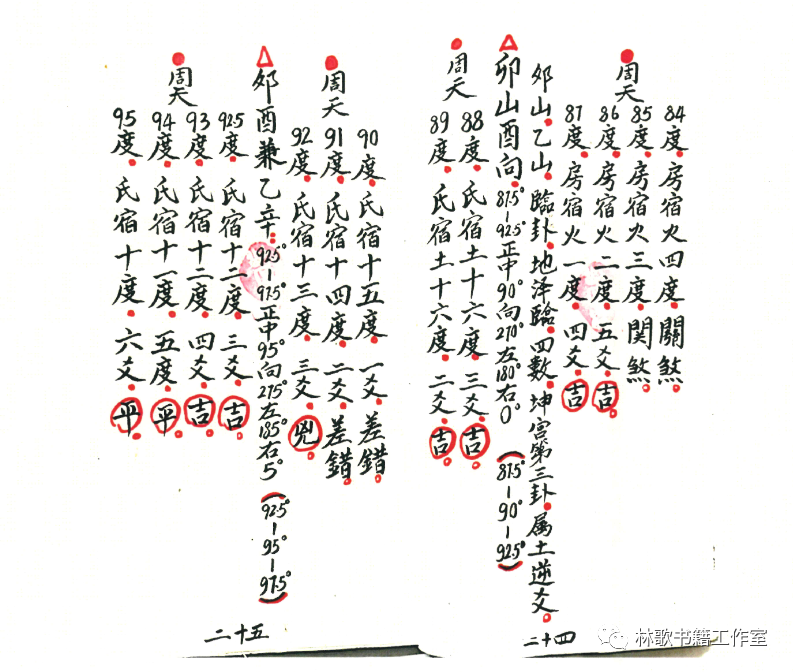 周天
84度。房宿火四度。關煞。
85度。房宿火三度。関煞。
86度。房宿火二度。五爻。吉。
87度。房宿火一度。四爻。吉。
郊山。乙山。臨卦。地泽臨。四數。坤宫第三卦。属土逆爻。
卯山酉向。87.5°-92.5°正中90°向270°左180°右0°(87.5°-90°-92.5°)
周天
88度。氏宿土十六度。三爻。吉。
89度。氏宿土十六度。二爻。吉。
二十四
周天
90度。氏宿十五度。一爻。差錯。
91度。氏宿十四度。二爻。差錯。
92度。氏宿十三度。三爻。兇。
郊酉兼乙辛:92.5°-97.5°正中95°向275°左185°右5°(92.5°-95°-97.5°)
周天
92.5度。氏宿十二度。三爻。吉。
93度。氏宿十二度。四爻。吉。
94度。氏宿十一度。五度。平。
95度。氏宿十度。六爻。平。
二十五
林歌书籍工作室